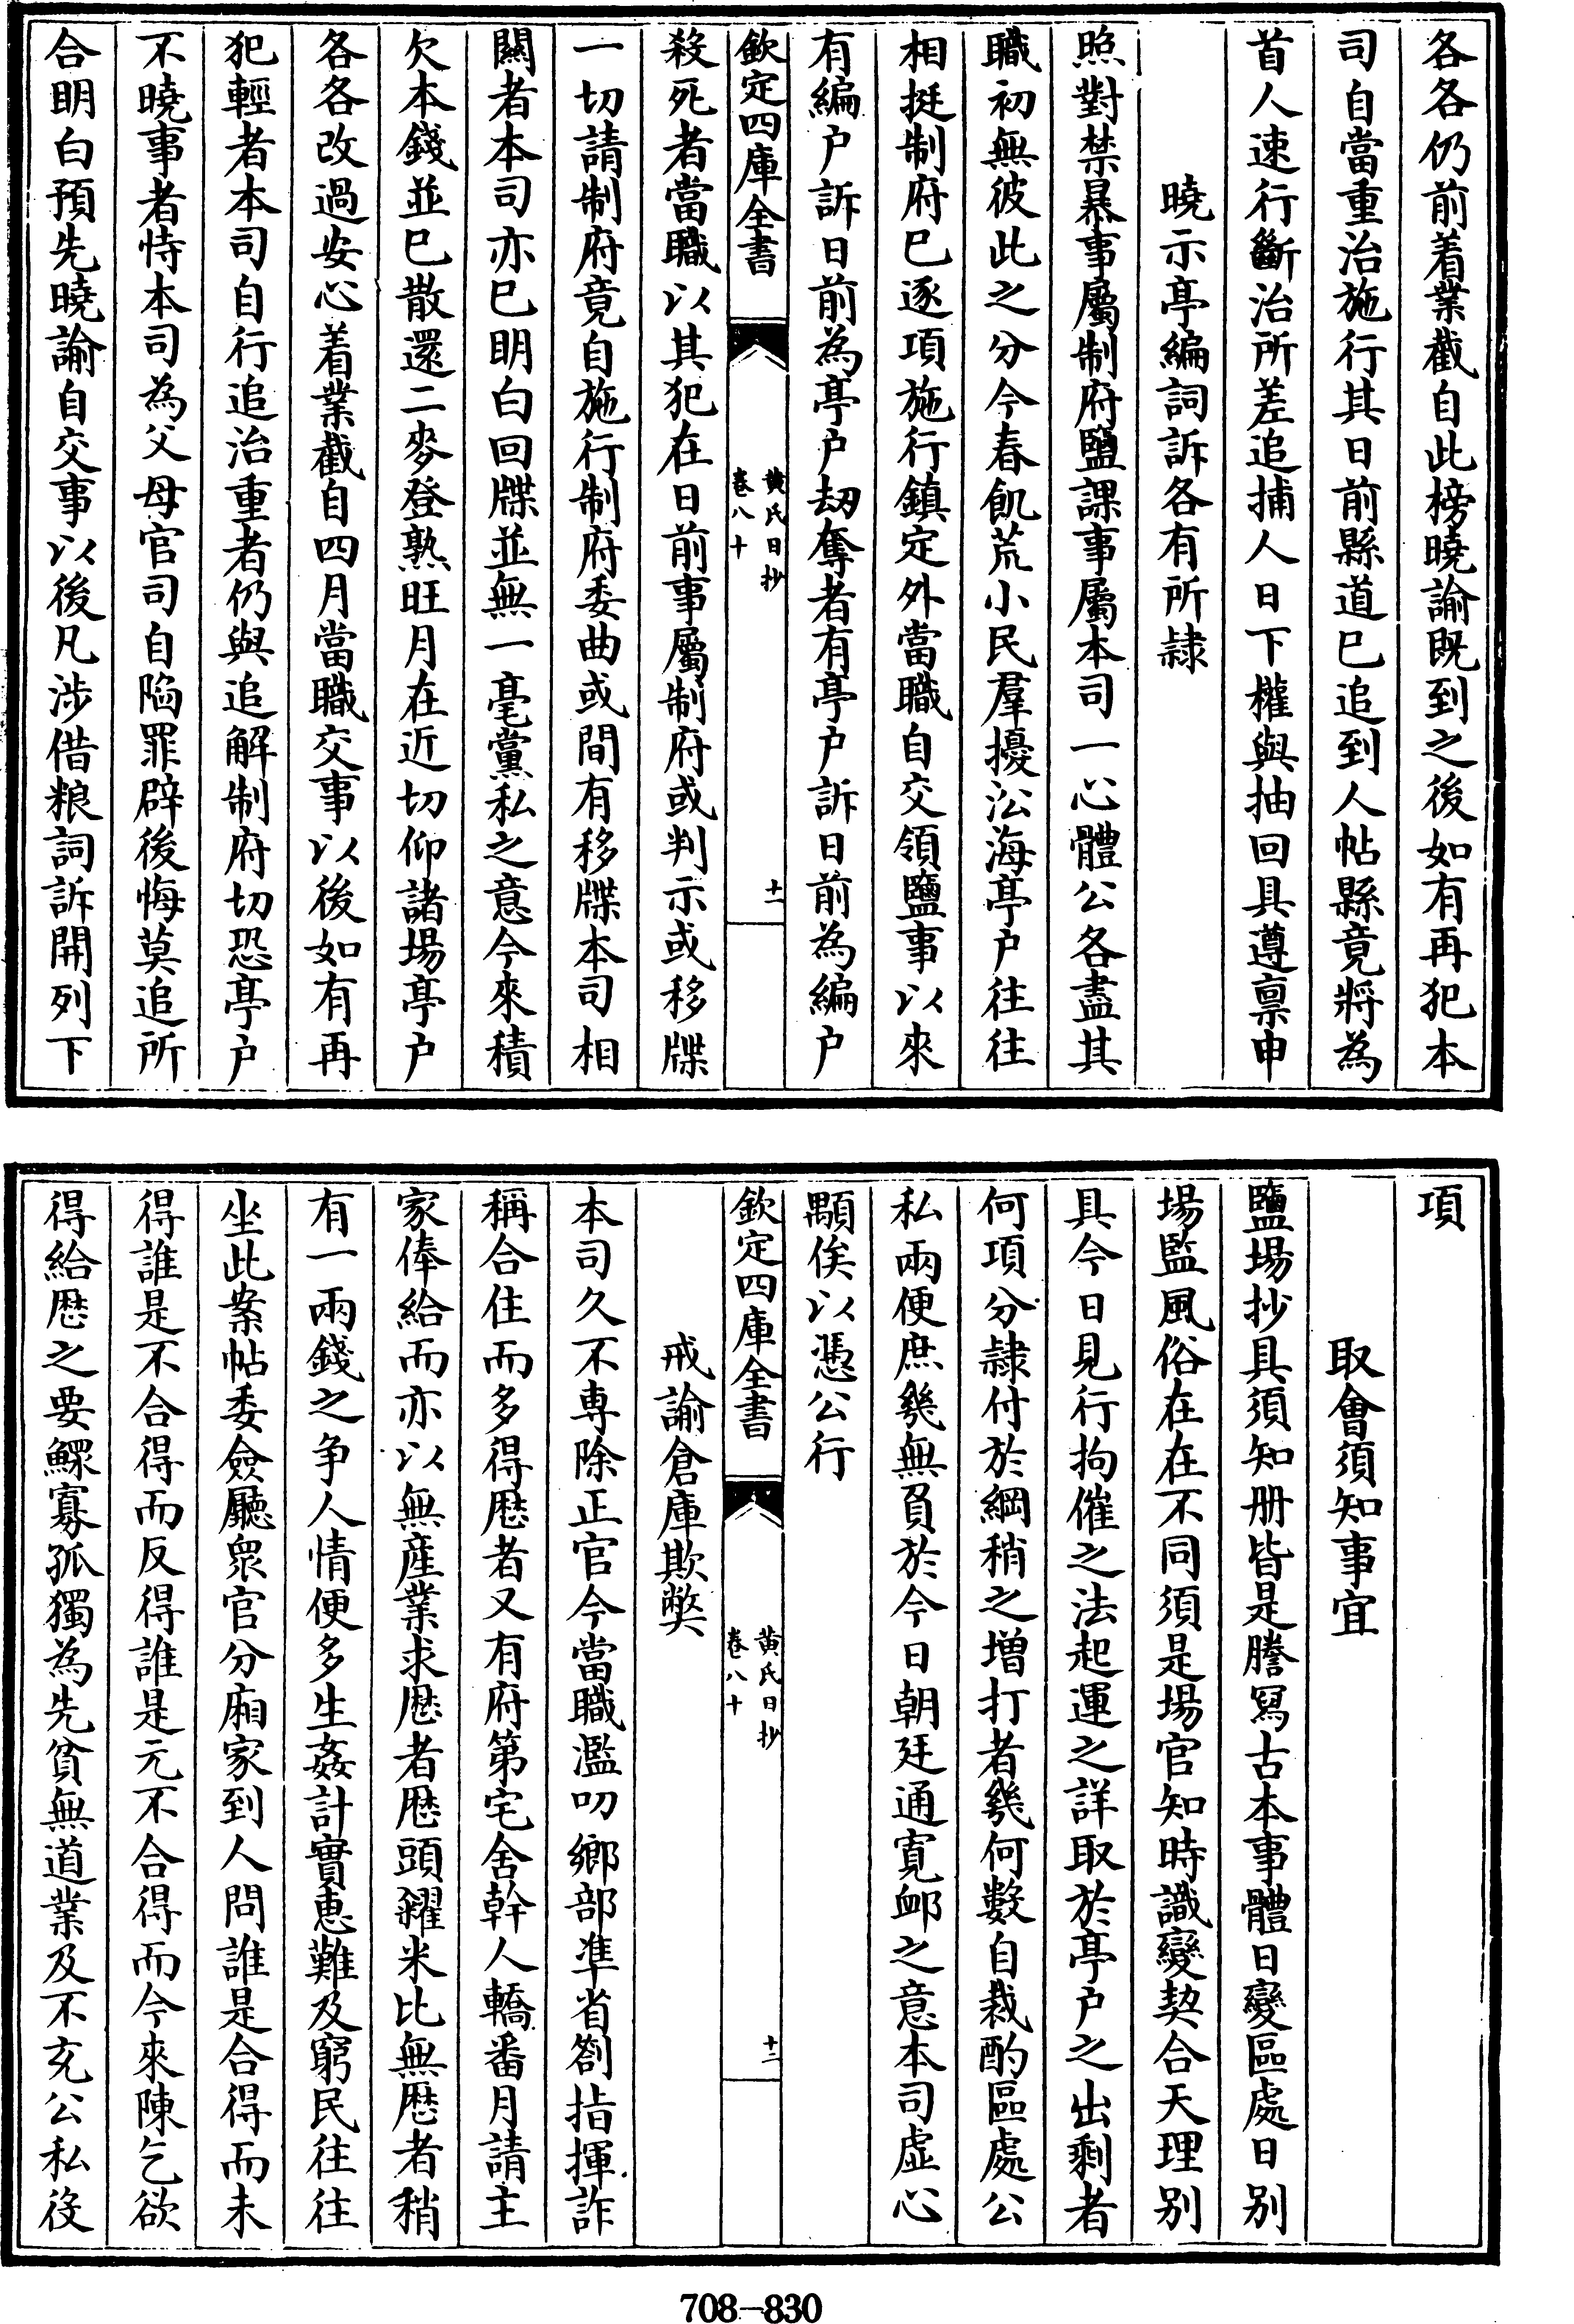 各各仍前着業截自此榜曉諭既到之後如有再犯本
司自當重治施行其日前縣道已追到人帖縣竟將為
首人速行斷治所差追捕人日下權與抽回具遵禀申
曉示亭編詞訴各有所隷
照對禁暴事屬制府鹽課事屬本司一心體公各盡其
職初無彼此之分今春飢荒小民羣擾㳂海亭户往往
相挻制府已逐項施行鎮定外當職自交領鹽事以來
有編户訴日前為亭户刼奪者有亭户訴日前為編户
欽定四庫全書
黄氏日抄
卷八十
十一
殺死者當職以其犯在日前事屬制府或判示或移牒
一切請制府竟自施行制府委曲或間有移牒本司相
關者本司亦已明白回牒並無一毫黨私之意今來積
欠本錢並已散還二麥登熟旺月在近切仰諸場亭户
各各改過安心着業截自四月當職交事以後如有再
犯輕者本司自行追治重者仍與追解制府切恐亭户
不曉事者恃本司為父母官司自陷罪辟後悔莫追所
合明白預先曉諭自交事以後凡涉借粮詞訴開列下
項
取會須知事宜
鹽場抄具須知册皆是謄冩古本事體日變區處日别
場監風俗在在不同須是場官知時識變契合天理别
具今日見行拘催之法起運之詳取於亭户之出剩者
何項分隷付於綱稍之增打者幾何數自裁酌區處公
私兩便庶幾無負於今日朝廷通寛邮之意本司虚心
顒俟以憑公行
欽定四庫全書
黄氏日抄
卷八十
十二
戒諭倉庫欺弊
本司久不專除正官今當職濫叨鄉部凖省劄指揮詐
稱合住而多得厯者又有府第宅舍幹人轎番月請主
家俸給而亦以無産業求厯者厯頭糴米比無厯者稍
有一兩錢之争人情便多生姦計實惠難及窮民往往
坐此案帖委僉廳衆官分廂家到人問誰是合得而未
得誰是不合得而反得誰是元不合得而今來陳乞欲
得給厯之要鰥寡孤獨為先貧無道業及不充公私役
708—830